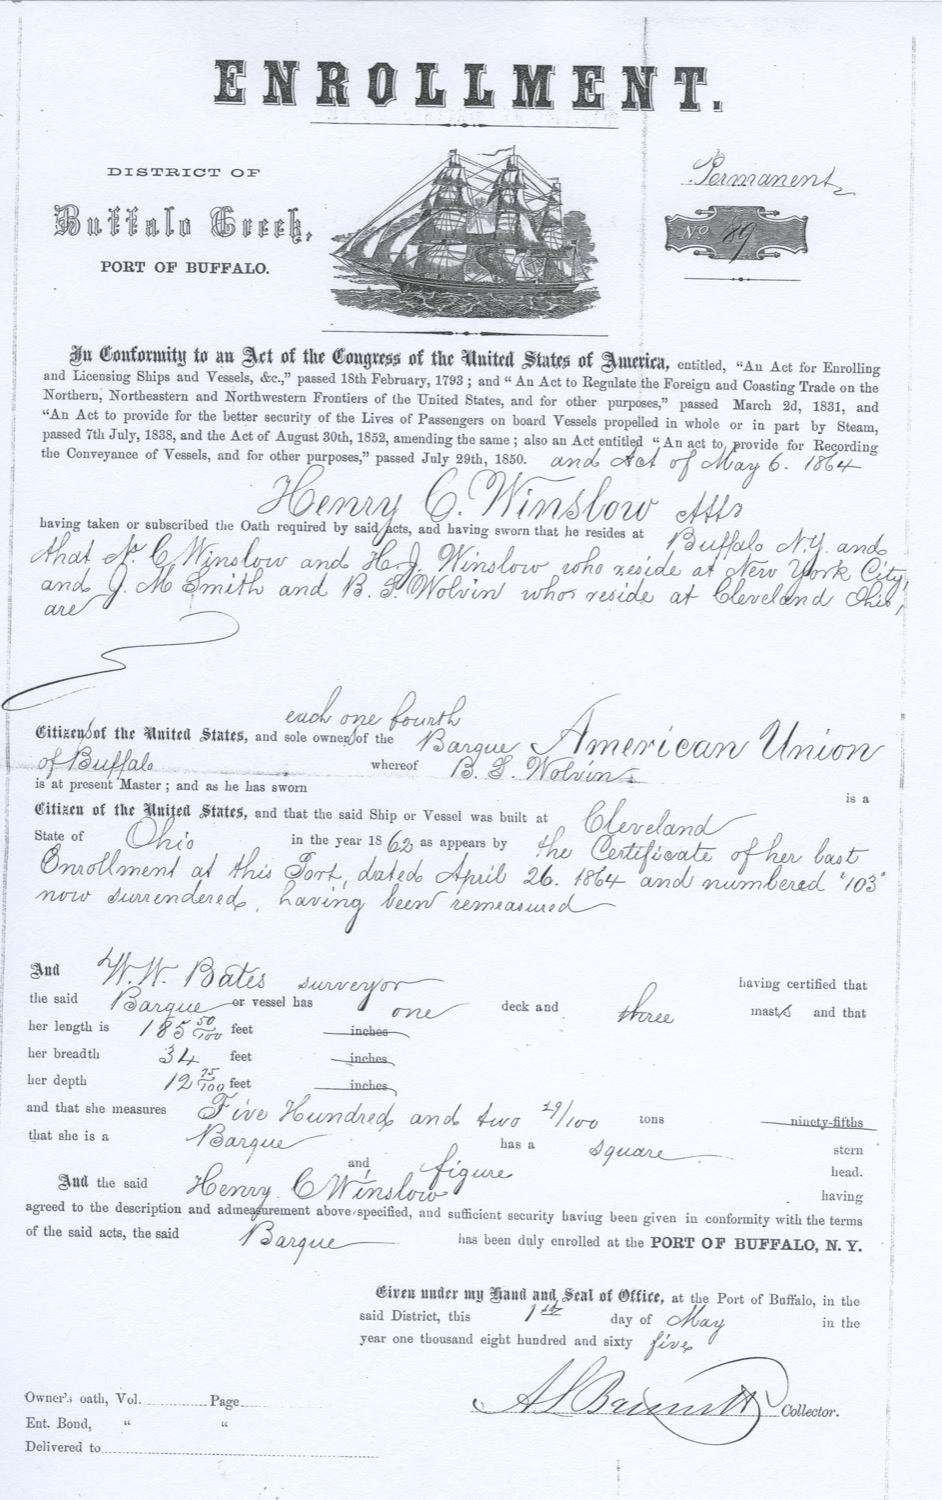 ENROLLMENT.
DISTRICT OF
Buffalo Creek,
PORT OF BUFFALO.
Permanent
No 89
In Conformity to an Act of the Congress of the United States of America, entitled, "An Act for Enrolling
and Licensing Ships and Vessels, &c.," passed 18th February, 1793; and "An Act to Regulate the Foreign and Coasting Trade on the
Northern, Northeastern and Northwestern Frontiers of the United States, and for other purposes," passed March 2d, 1831, and
"An Act to provide for the better security of the Lives of Passengers on board Vessels propelled in whole or in part by Steam,
passed 7th July, 1838, and the Act of August 30th, 1852, amending the same; also an Act entitled "An act to provide for Recording
the Conveyance of Vessels, and for other purposes," passed July 29th, 1850. and Act of May 6. 1864
Henry C. Winslow
having taken or subscribed the Oath required by said acts, and having sworn that he resides at Buffalo N.Y. and
that N. C Winslow and H. J. Winslow who reside at New York City,
and J. M Smith and B. L. Wolvin who reside at Cleveland Ohio,
are
each one fourth
Citizens of the United States, and sole owners of the Barque American Union
of Buffalo whereof B. L. Wolvin
is at present Master; and as he has sworn is a
Citizen of the United States, and that the said Ship or Vessel was built at Cleveland
State of Ohio in the year 1862 as appears by the Certificate of her last
Enrollment at this Port, dated April 26. 1864 and numbered "103"
now surrendered, having been remeasured
And W. W. Bates surveyor having certified that
the said Barque or vessel has one deck and three masts and that
her length is 185 50/100 feet inches
her breadth 34 feet inches
her depth 12 75/100 feet inches
and that she measures Five Hundred and two 29/100 tons ninety-fifths
that she is a Barque has a square stern
and figure head.
And the said Henry C Winslow having
agreed to the description and admeasurement above specified, and sufficient security having been given in conformity with the terms
of the said acts, the said Barque has been duly enrolled at the PORT OF BUFFALO, N. Y.
Given under my Hand and Seal of Office, at the Port of Buffalo, in the
said District, this 1st day of May in the
year one thousand eight hundred and sixty five
Collector.
Owner's oath, Vol. Page
Ent. Bond, " "
Delivered to